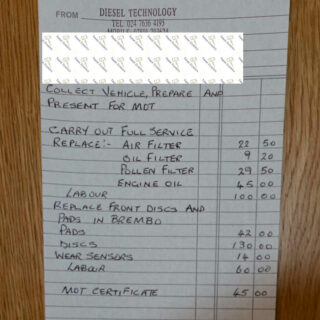 FROM DIESEL TECHNOLOGY
TEL. 024 7636 4193
COLLECT VEHICLE, PREPARE AND
PRESENT FOR MOT
CARRY OUT FULL SERVICE
REPLACE:- AIR FILTER 22 50
OIL FILTER 9 20
POLLEN FILTER 29 50
ENGINE OIL 45 00
LABOUR 100 00
REPLACE FRONT DISCS AND
PADS IN BREMBO
PADS 42 00
DISCS 130 00
WEAR SENSORS 14 00
LABOUR 60 00
MOT CERTIFICATE 45 00